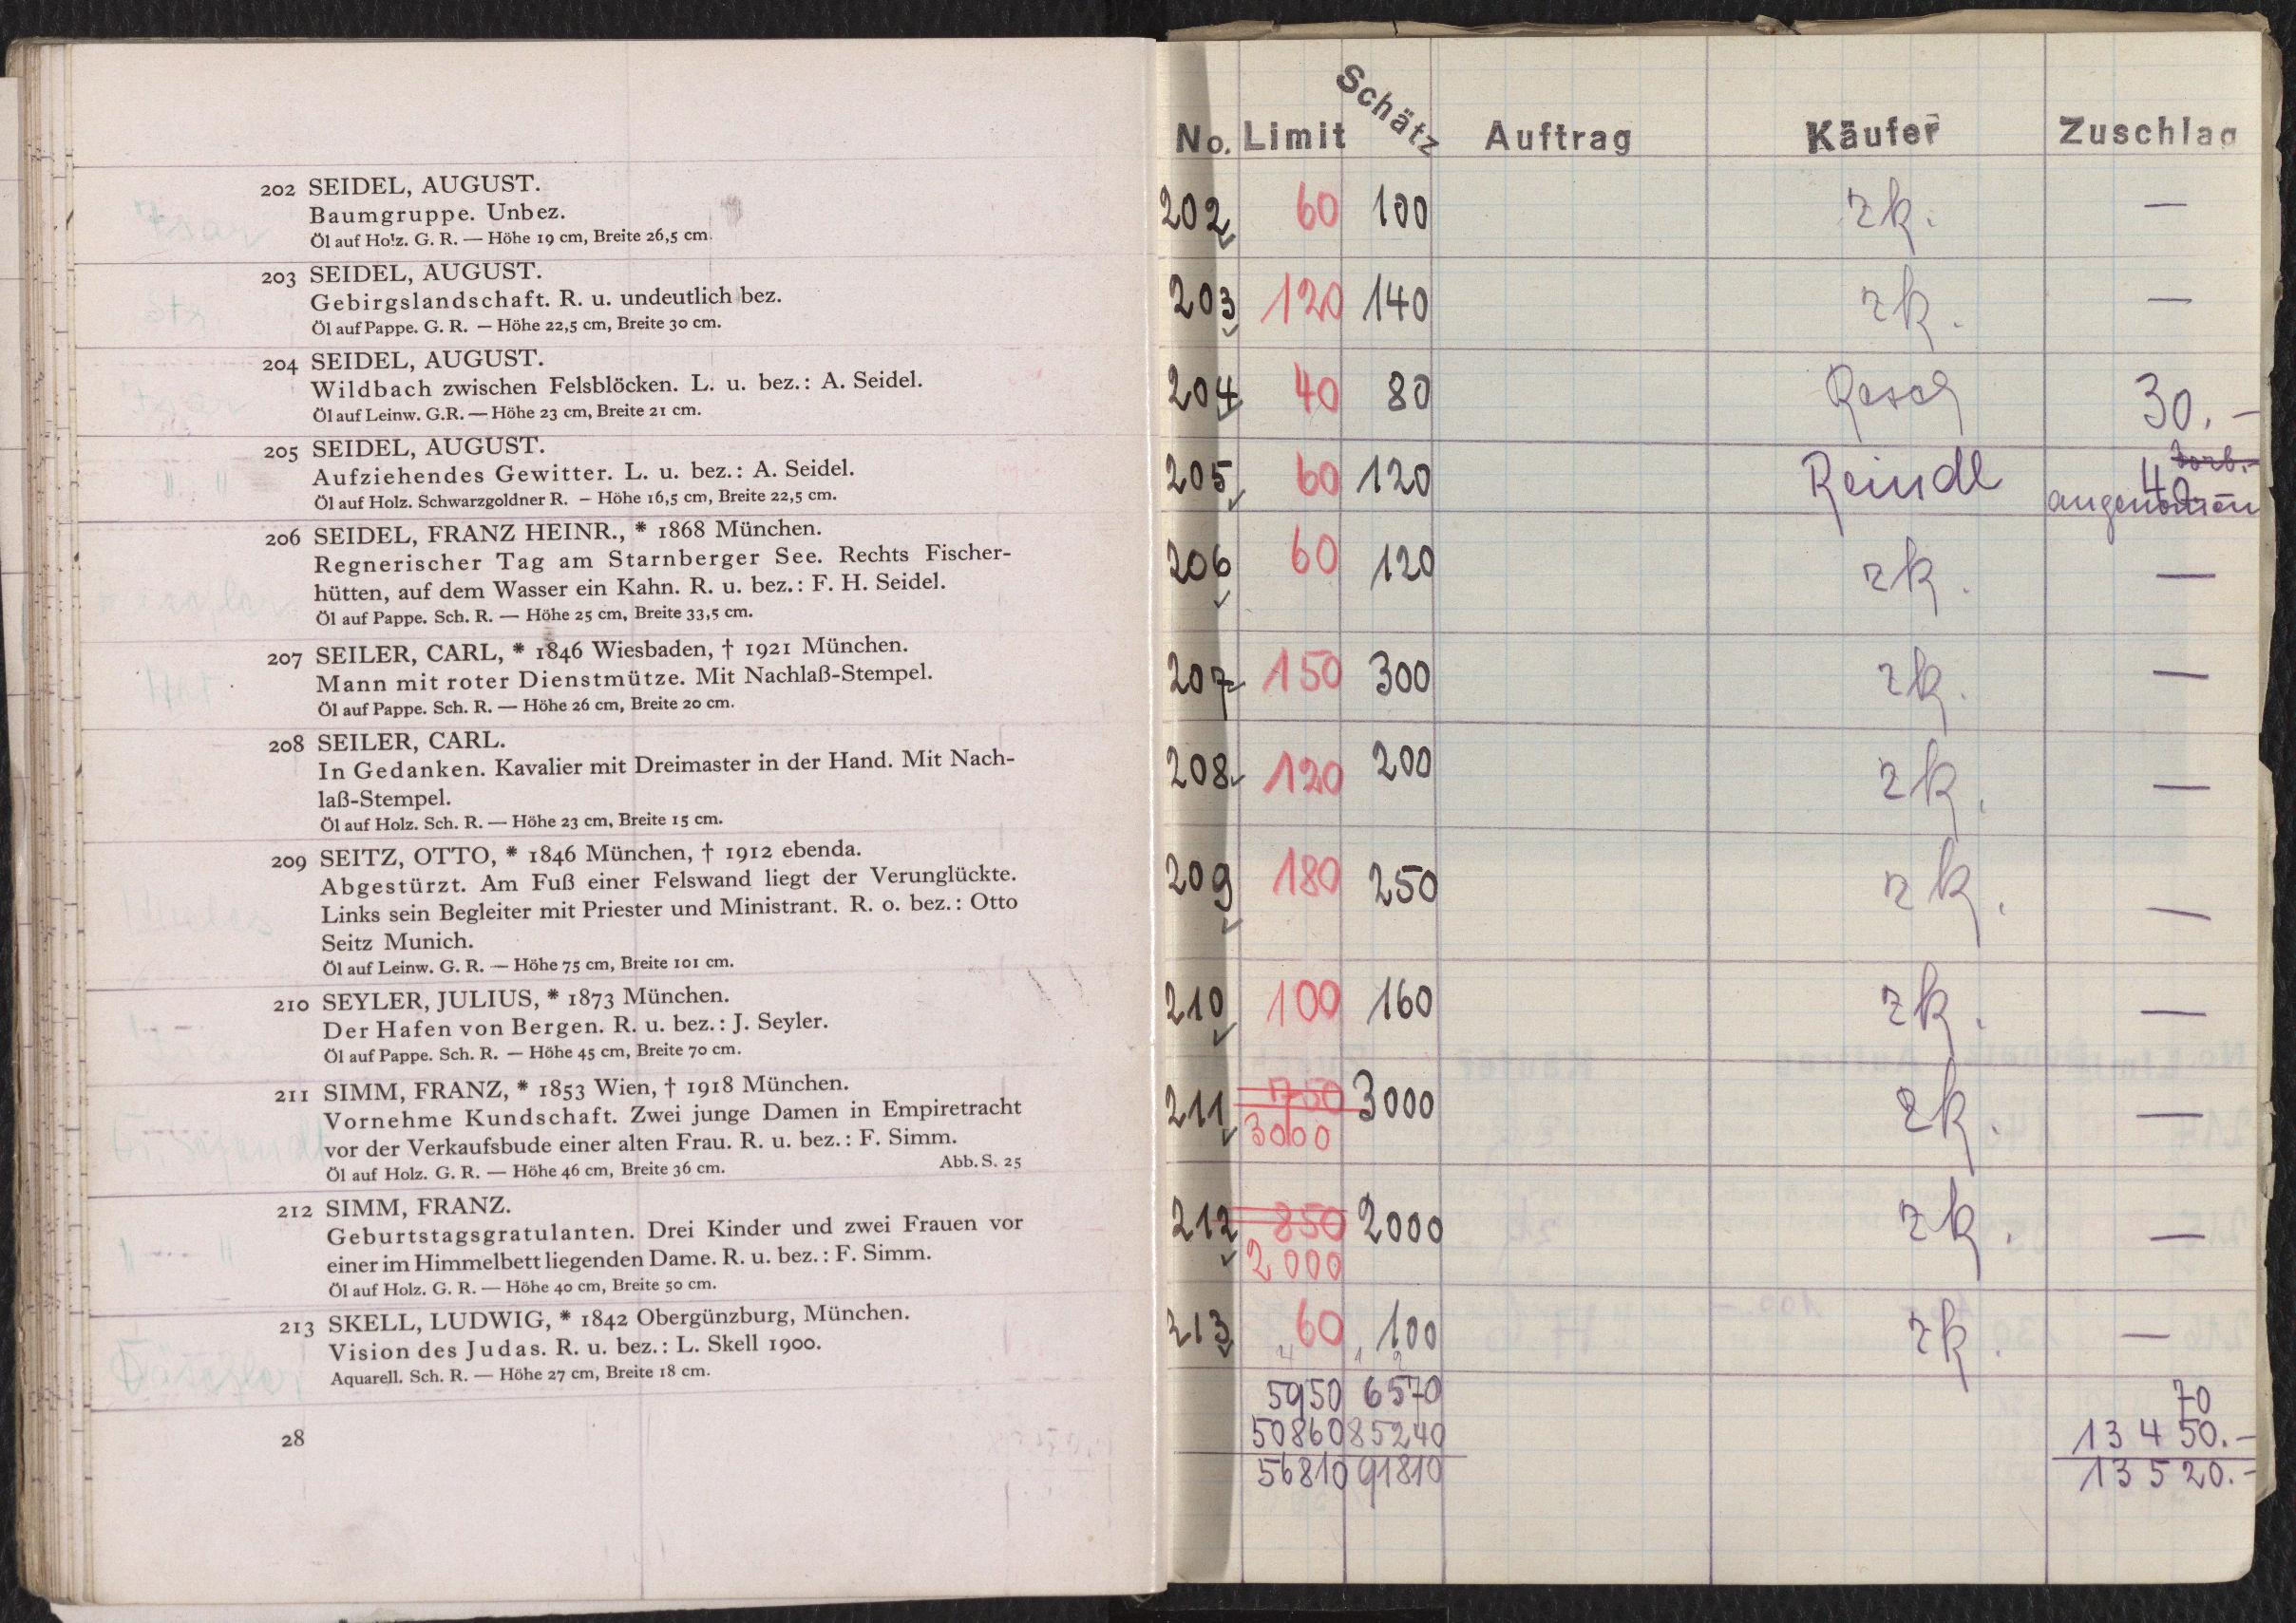 202 SEIDEL, AUGUST.
Baumgruppe. Unbez.
Öl auf Holz. G. R. — Höhe 19 cm, Breite 26,5 cm.
203 SEIDEL, AUGUST.
Gebirgslandschaft. R. u. undeutlich bez.
Öl auf Pappe. G. R. — Höhe 22,5 cm, Breite 30 cm.
204 SEIDEL, AUGUST.
Wildbach zwischen Felsblöcken. L. u. bez.: A. Seidel.
Öl auf Leinw. G.R. — Höhe 23 cm, Breite 21 cm.
205 SEIDEL, AUGUST.
Aufziehendes Gewitter. L. u. bez.: A. Seidel.
Öl auf Holz. Schwarzgoldner R. — Höhe 16,5 cm, Breite 22,5 cm.
206 SEIDEL, FRANZ HEINR., * 1868 München.
Regnerischer Tag am Starnberger See. Rechts Fischer-
hütten, auf dem Wasser ein Kahn. R. u. bez.: F. H. Seidel.
Öl auf Pappe. Sch. R. — Höhe 25 cm, Breite 33,5 cm.
207 SEILER, CARL, * 1846 Wiesbaden, † 1921 München.
Mann mit roter Dienstmütze. Mit Nachlaß-Stempel.
Öl auf Pappe. Sch. R. — Höhe 26 cm, Breite 20 cm.
208 SEILER, CARL.
In Gedanken. Kavalier mit Dreimaster in der Hand. Mit Nach-
laß-Stempel.
Öl auf Holz. Sch. R. — Höhe 23 cm, Breite 15 cm.
209 SEITZ, OTTO, * 1846 München, † 1912 ebenda.
Abgestürzt. Am Fuß einer Felswand liegt der Verunglückte.
Links sein Begleiter mit Priester und Ministrant. R. o. bez.: Otto
Seitz Munich.
Öl auf Leinw. G. R. — Höhe 75 cm, Breite 101 cm.
210 SEYLER, JULIUS, * 1873 München.
Der Hafen von Bergen. R. u. bez.: J. Seyler.
Öl auf Pappe. Sch. R. — Höhe 45 cm, Breite 70 cm.
211 SIMM, FRANZ, * 1853 Wien, † 1918 München.
Vornehme Kundschaft. Zwei junge Damen in Empiretracht
vor der Verkaufsbude einer alten Frau. R. u. bez.: F. Simm.
Öl auf Holz. G. R. — Höhe 46 cm, Breite 36 cm. Abb. S. 25
212 SIMM, FRANZ.
Geburtstagsgratulanten. Drei Kinder und zwei Frauen vor
einer im Himmelbett liegenden Dame. R. u. bez.: F. Simm.
Öl auf Holz. G. R. — Höhe 40 cm, Breite 50 cm.
213 SKELL, LUDWIG, * 1842 Obergünzburg, München.
Vision des Judas. R. u. bez.: L. Skell 1900.
Aquarell. Sch. R. — Höhe 27 cm, Breite 18 cm.
28
No. Limit Schätz Auftrag Käufer Zuschlag
202 60 100 zk. —
203 120 140 zk. —
204 40 80 30.-
205 60 120 Reindl 40
angenomen
206 60 120 zk. —
207 150 300 zk. —
208 120 200 zk. —
209 180 250 zk. —
210 100 160 zk. —
211 750 3000 zk. —
3000
212 850 2000 zk. —
2000
213 60 100 zk. —
5950 6570 70
50860 85240 13450.-
56810 91810 13520.-